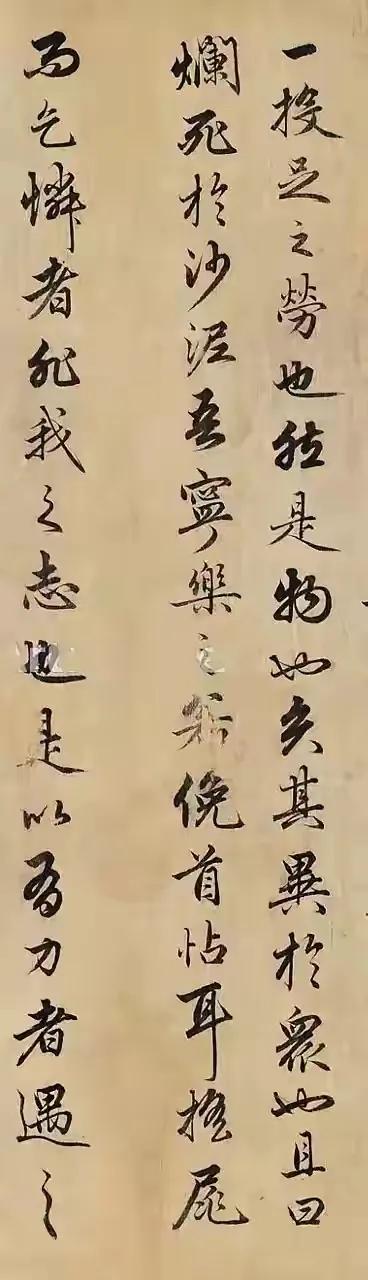 一投足之勞也然是物也負其異於衆也且曰
爛死於沙泥吾寧樂之若俛首怗耳搖尾
而乞憐者非我之志也是以有力者遇之